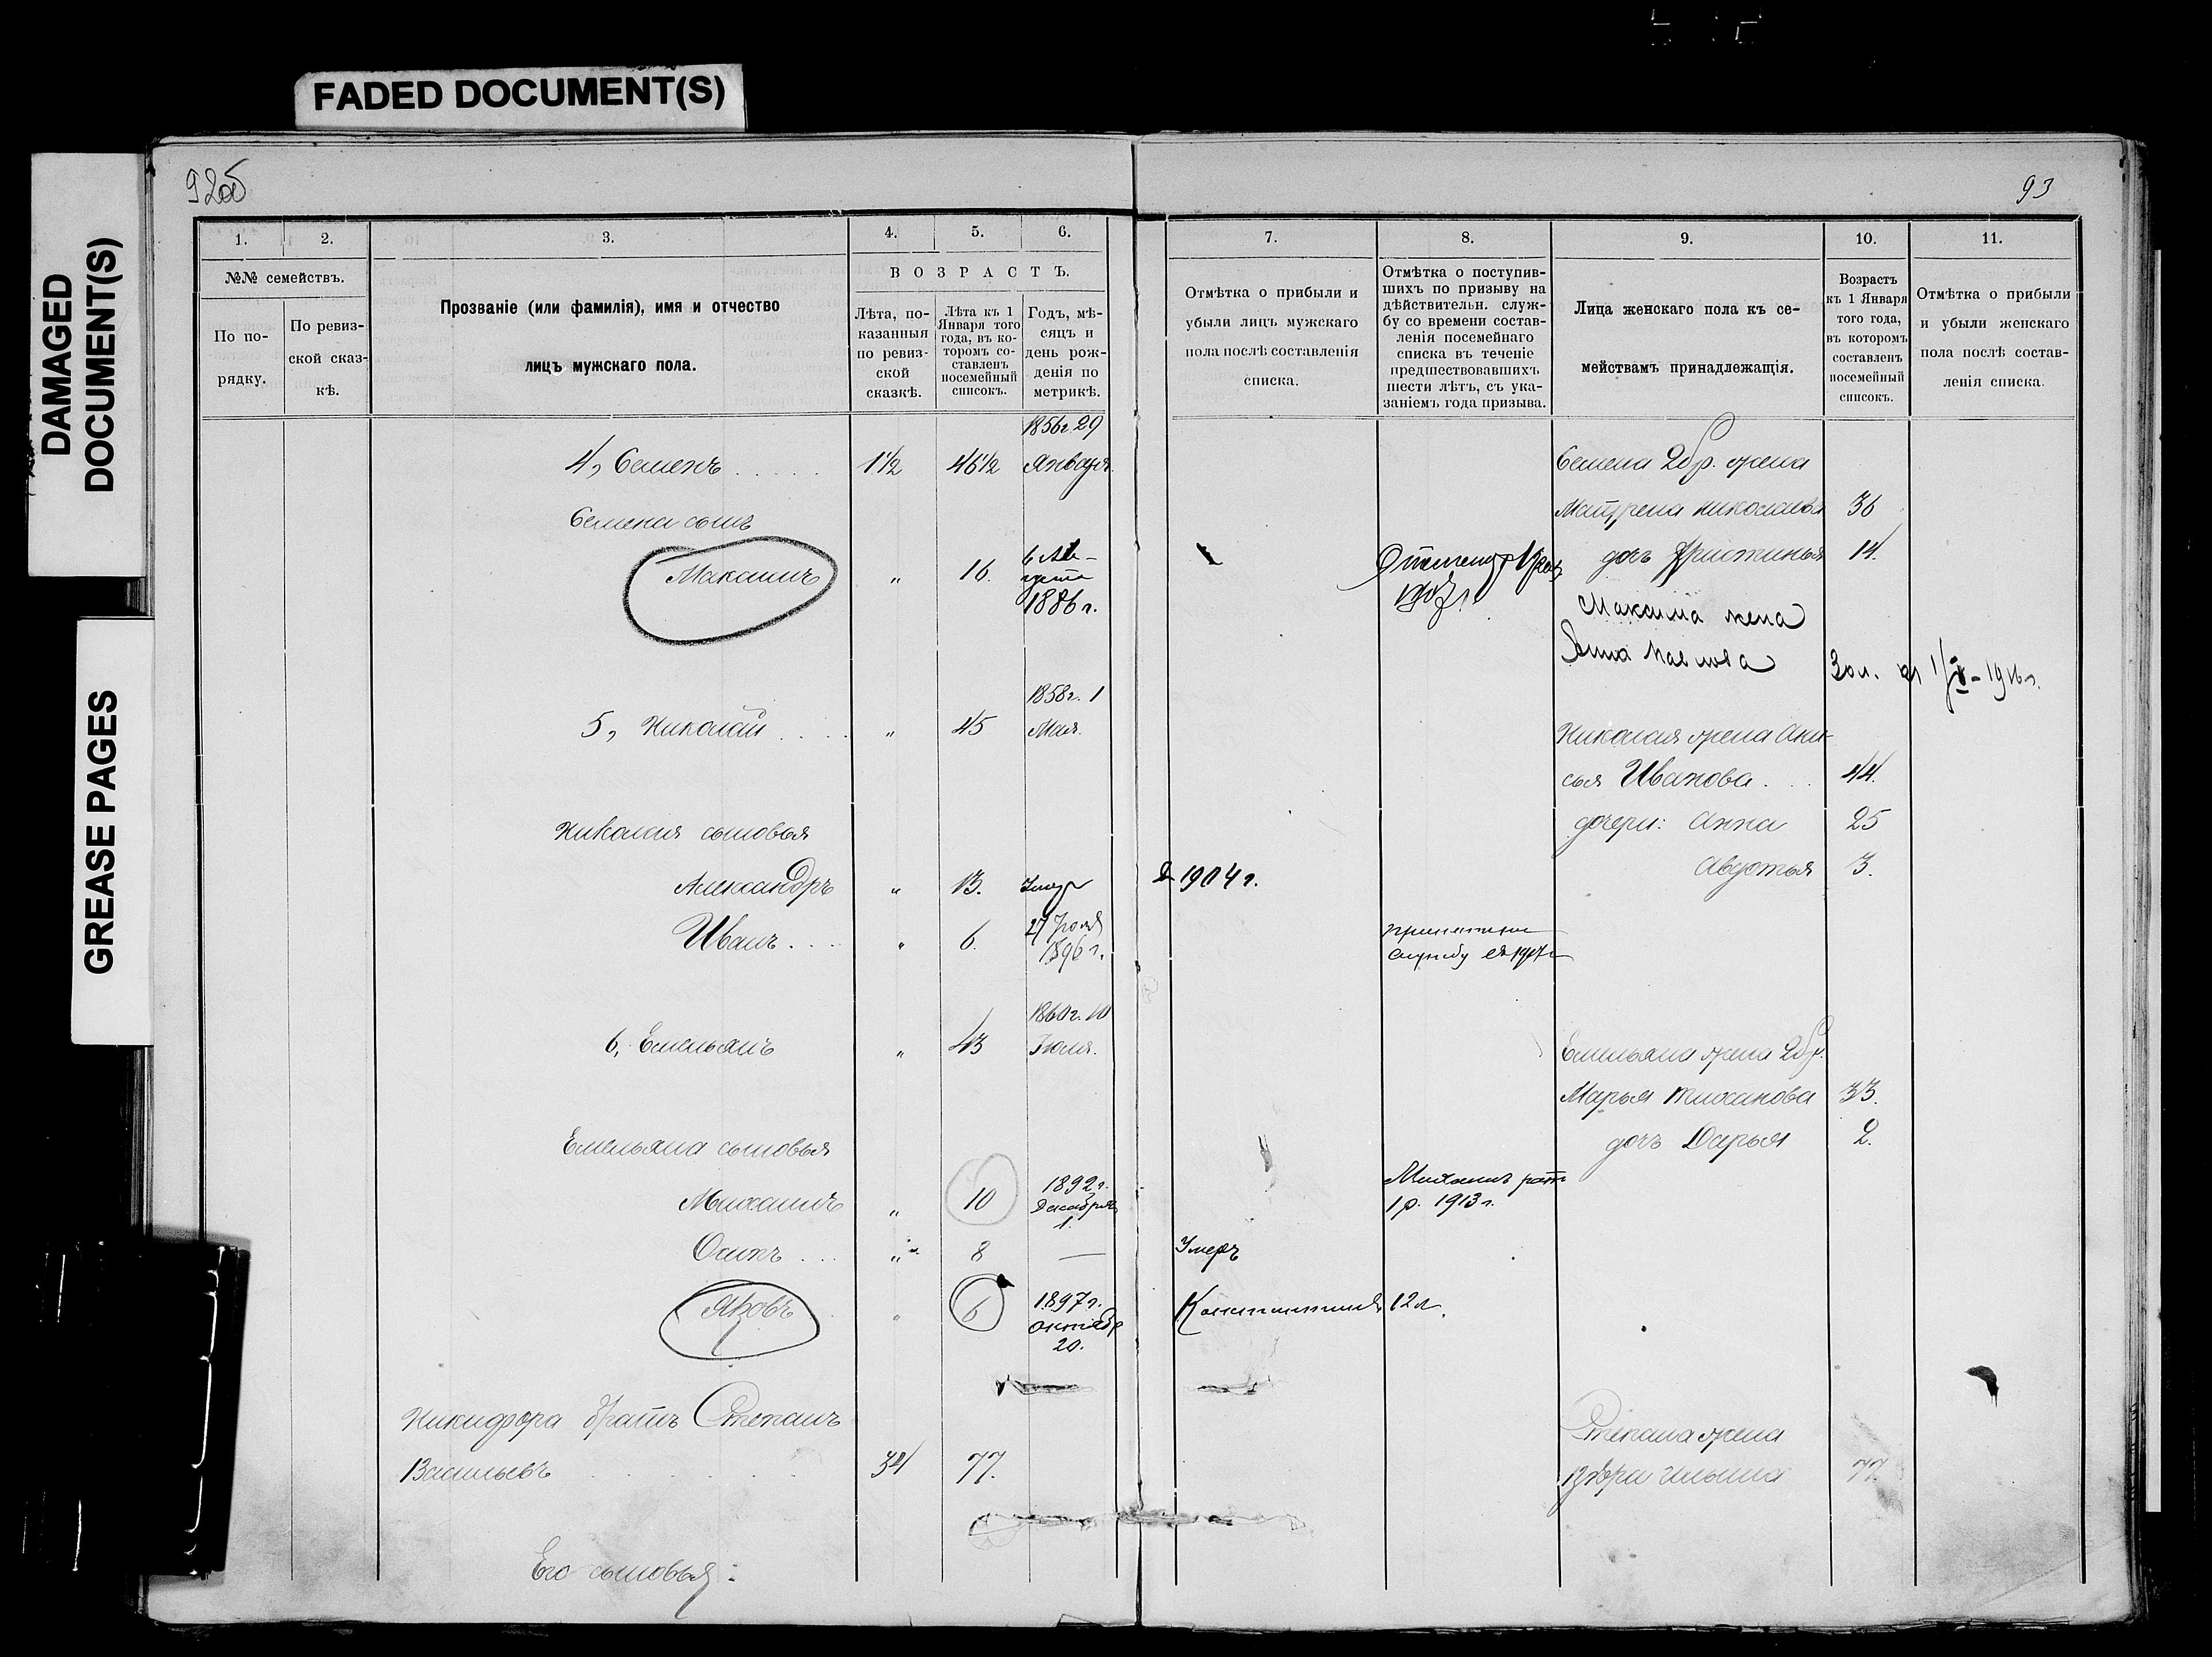 FADED DOCUMENT(S)
DAMAGED
DOCUMENT(S)
GREASE PAGES
92об
93
1.
2.
3.
4.
5.
6.
7.
8.
9.
10.
11.
№№ семействъ.
По по-
рядку.
По ревиз-
ской сказ-
кѣ.
Прозваніе (или фамилія), имя и отчество
лицъ мужскаго пола.
ВОЗРАСТЪ.
Лѣта, по-
казанныя
по ревиз-
ской
сказкѣ.
Лѣта къ 1
Января того
года, въ ко-
торомъ со-
ставленъ
посемейный
списокъ.
Годъ, мѣ-
сяцъ и
день рож-
денія по
метрикѣ.
Отмѣтка о прибыли и
убыли лицъ мужскаго
пола послѣ составленія
списка.
Отмѣтка о поступив-
шихъ по призыву на
дѣйствительн. служ-
бу со времени состав-
ленія посемейнаго
списка въ теченіе
предшествовавшихъ
шести лѣтъ, съ ука-
заніемъ года призыва.
Лица женскаго пола къ се-
мействамъ принадлежащія.
Возрастъ
къ 1 Января
того года,
въ которомъ
составленъ
посемейный
списокъ.
Отмѣтка о прибыли
и убыли женскаго
пола послѣ состав-
ленія списка.
1856г. 29
4, Семенъ 1½ 46½ Января Семена 2бр. жена
Матрена Николаева 36
Семена сынъ
Максимъ " 16. 6 Ав-
густа
1886 г.
дочь Христинья 14.
1907г.
Максима жена
Анна Павлова 30л. 1916г.
1858г. 1
5, Николай " 45 Мая. Николая жена Ани-
сья Иванова 44.
Николая сыновья дочери: Анна 25
Александръ " 13. Умеръ в 1904 г. Авдотья 3.
Иванъ " 6. 27 Іюля
1896 г.
принятъ на
службу
1860г. 10
6, Емельянъ " 43 Іюля. Емельяна жена 2бр.
Марья Тиханова 33.
Емельяна сыновья дочь Дарья 2.
Михаилъ " 10 1892 г.
Декабря
1.
Михаилъ рат
1 р. 1913 г.
Осипъ " 8 — Умеръ
Яковъ " 6 1897 г.
Октябр
20.
Константинъ 12 л.
Никифора братъ Степанъ Степана жена
Васильевъ 34 77. Ильина 77.
Его сыновья: